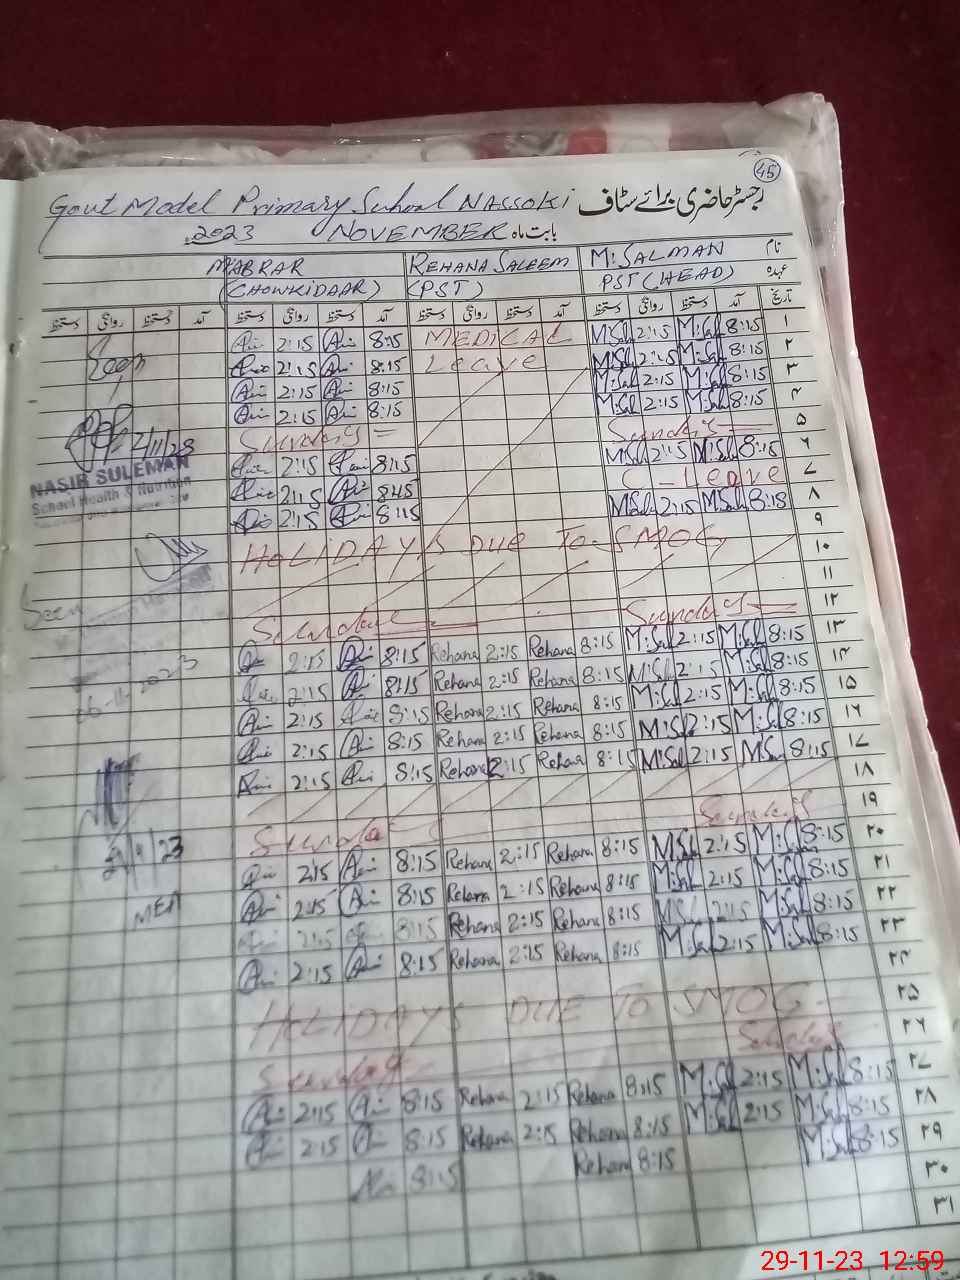 45
Govt Model Primary School NASSOKI رجسٹر حاضری برائے سٹاف
2023 NOVEMBER بابت ماہ
M ABRAR REHANA SALEEM M: SALMAN نام
(CHOWKIDAAR) (PST) PST (HEAD) عہدہ
دستخط روانگی دستخط آمد دستخط روانگی دستخط آمد دستخط روانگی دستخط آمد دستخط روانگی دستخط آمد تاریخ
Seen 2:15 8:15 MEDICAL M:Sal 2:15 M:Sal 8:15 ۱
2:15 8:15 Leave M:Sal 2:15 M:Sal 8:15 ۲
2:15 8:15 M:Sal 2:15 M:Sal 8:15 ۳
2:15 8:15 M:Sal 2:15 M:Sal 8:15 ۴
Sunday Sunday ۵
2:15 8:15 M:Sal 2:15 M:Sal 8:15 ۶
NASIR SULEMAN 2:15 8:15 C-Leave ۷
School Health & Nutrition 2:15 8:15 2:15 M:Sal 8:15 ۸
HOLIDAYS DUE TO SMOG ۹
۱۰
Seen ۱۱
Sunday Sunday ۱۲
2:15 8:15 Rehana 2:15 Rehana 8:15 M:Sal 2:15 M:Sal 8:15 ۱۳
2:15 8:15 Rehana 2:15 Rehana 8:15 M:Sal 2:15 M:Sal 8:15 ۱۴
2:15 8:15 Rehana 2:15 Rehana 8:15 M:Sal 2:15 M:Sal 8:15 ۱۵
2:15 8:15 Rehana 2:15 Rehana 8:15 M:Sal 2:15 M:Sal 8:15 ۱۶
2:15 8:15 Rehana 2:15 Rehana 8:15 M:Sal 2:15 M:Sal 8:15 ۱۷
۱۸
Sunday Sunday ۱۹
2:15 8:15 Rehana 2:15 Rehana 8:15 M:Sal 2:15 M:Sal 8:15 ۲۰
2:15 8:15 Rehana 2:15 Rehana 8:15 M:Sal 2:15 M:Sal 8:15 ۲۱
MEA 2:15 8:15 Rehana 2:15 Rehana 8:15 M:Sal 2:15 M:Sal 8:15 ۲۲
2:15 8:15 Rehana 2:15 Rehana 8:15 M:Sal 2:15 M:Sal 8:15 ۲۳
۲۴
HOLIDAYS DUE TO SMOG ۲۵
Sunday Sunday ۲۶
2:15 8:15 Rehana 2:15 Rehana 8:15 M:Sal 2:15 M:Sal 8:15 ۲۷
2:15 8:15 Rehana 2:15 Rehana 8:15 M:Sal 2:15 M:Sal 8:15 ۲۸
8:15 Rehana 8:15 M:Sal 8:15 ۲۹
۳۰
۳۱
29-11-23 12:59